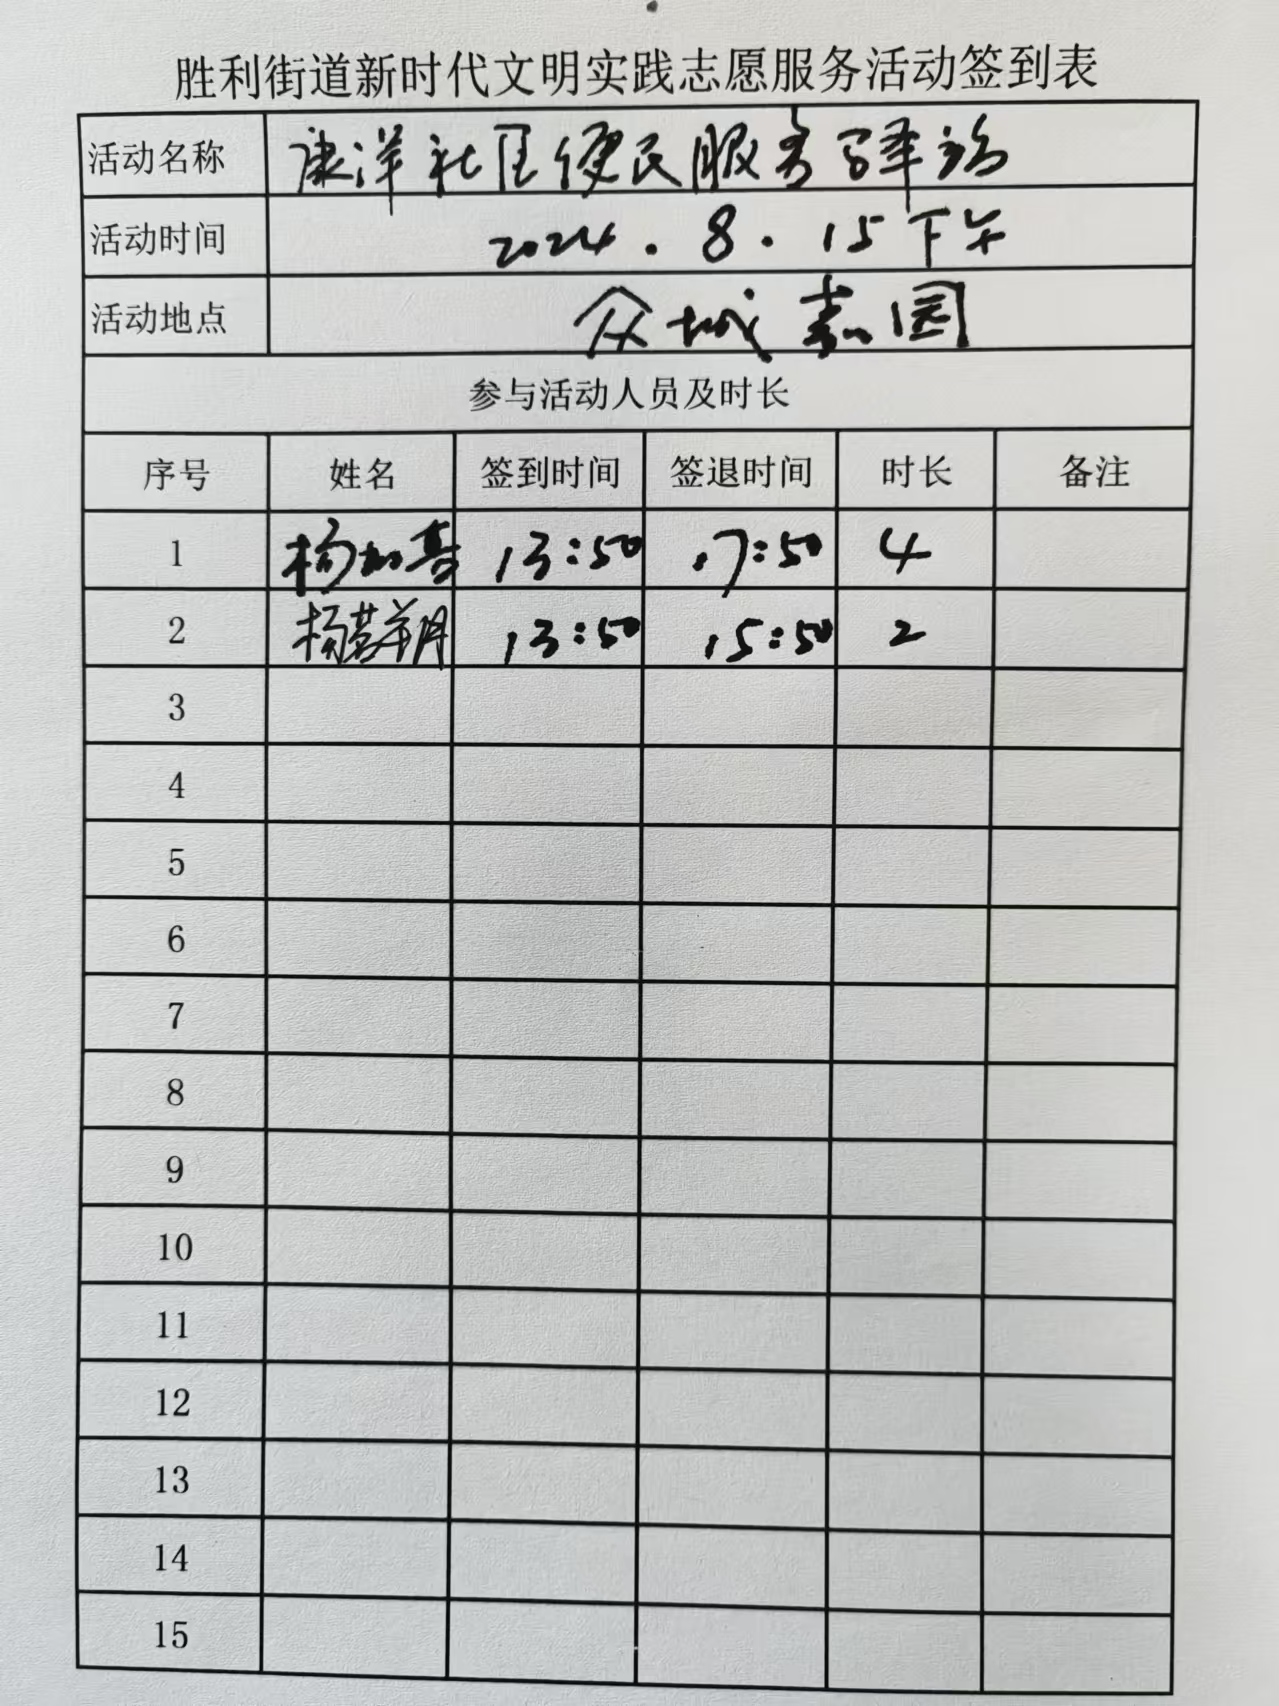 胜利街道新时代文明实践志愿服务活动签到表
活动名称 康洋社区便民服务驿站
活动时间 2024.8.15下午
活动地点 众城嘉园
参与活动人员及时长
序号 姓名 签到时间 签退时间 时长 备注
1 杨加喜 13:50 17:50 4
2 杨 13:50 15:50 2
3
4
5
6
7
8
9
10
11
12
13
14
15